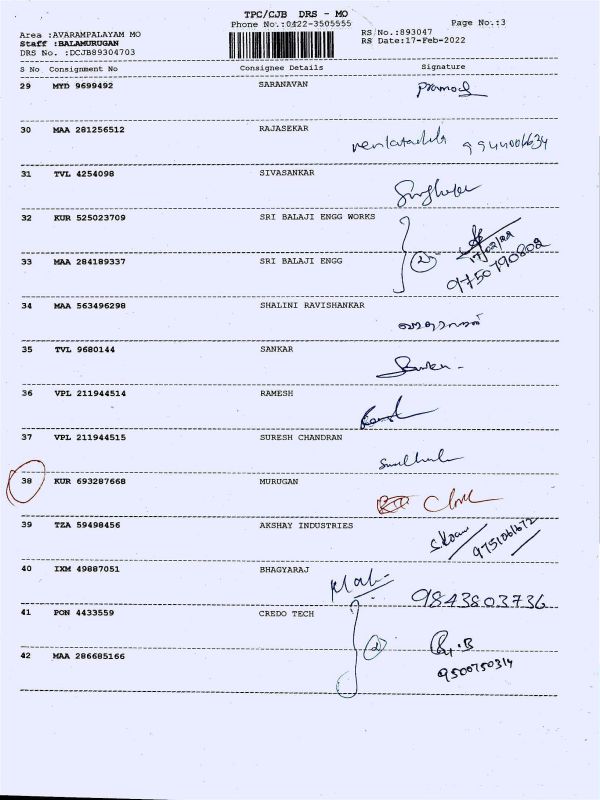 TPC/CJB DRS - MO
Phone No.:0422-3505555
Page No.:3
Area :AVARAMPALAYAM MO
RS No.:893047
Staff :BALAMURUGAN
RS Date:17-Feb-2022
DRS No. :DCJB89304703
S No Consignment No Consignee Details Signature
29 MYD 9699492 SARANAVAN Pramod
30 MAA 281256512 RAJASEKAR
31 TVL 4254098 SIVASANKAR
32 KUR 525023709 SRI BALAJI ENGG WORKS
17/02/22
33 MAA 284189337 SRI BALAJI ENGG 2 9750790802
34 MAA 563496298 SHALINI RAVISHANKAR
35 TVL 9680144 SANKAR
36 VPL 211944514 RAMESH
37 VPL 211944515 SURESH CHANDRAN
38 KUR 693287668 MURUGAN
39 TZA 59498456 AKSHAY INDUSTRIES 9751061672
40 IXM 49887051 BHAGYARAJ 9843803736
41 PON 4433559 CREDO TECH 2
42 MAA 286685166 9500750314